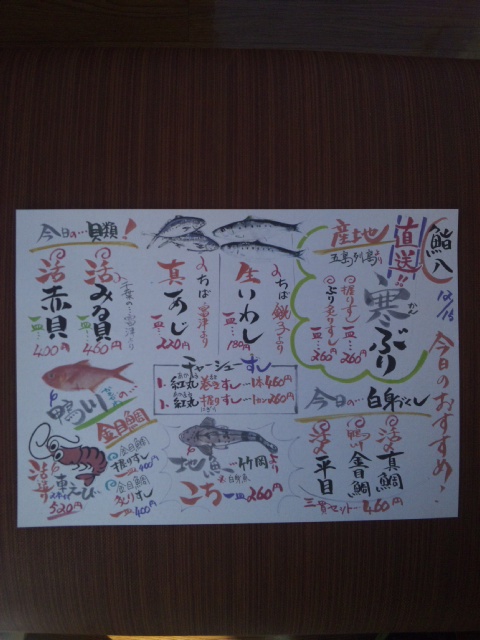 鮨八
12/15
今日のおすすめ!
産地
直送
五島列島
寒ぶり
かん
握りすし
一皿…260円
ぶり炙りすし
一皿…260円
今日の…白身づくし
活〆真鯛
鴨川金目鯛
活〆平目
三貫セット…460円
ちば銚子より
生いわし
一皿…180円
ちば富津より
真あじ
一皿…220円
チャーシューすし
1、紅丸巻きすし…1本460円
1、紅丸握りすし…260円
地魚…竹岡より
白身魚
こち…一皿260円
今日の…貝類!
千葉の…富津より
活みる貝
一皿…460円
活赤貝
一皿…400円
鴨川の…
金目鯛
金目鯛
握りすし
一皿…400円
金目鯛
炙りすし
一皿…400円
活〆り
車えび
520円